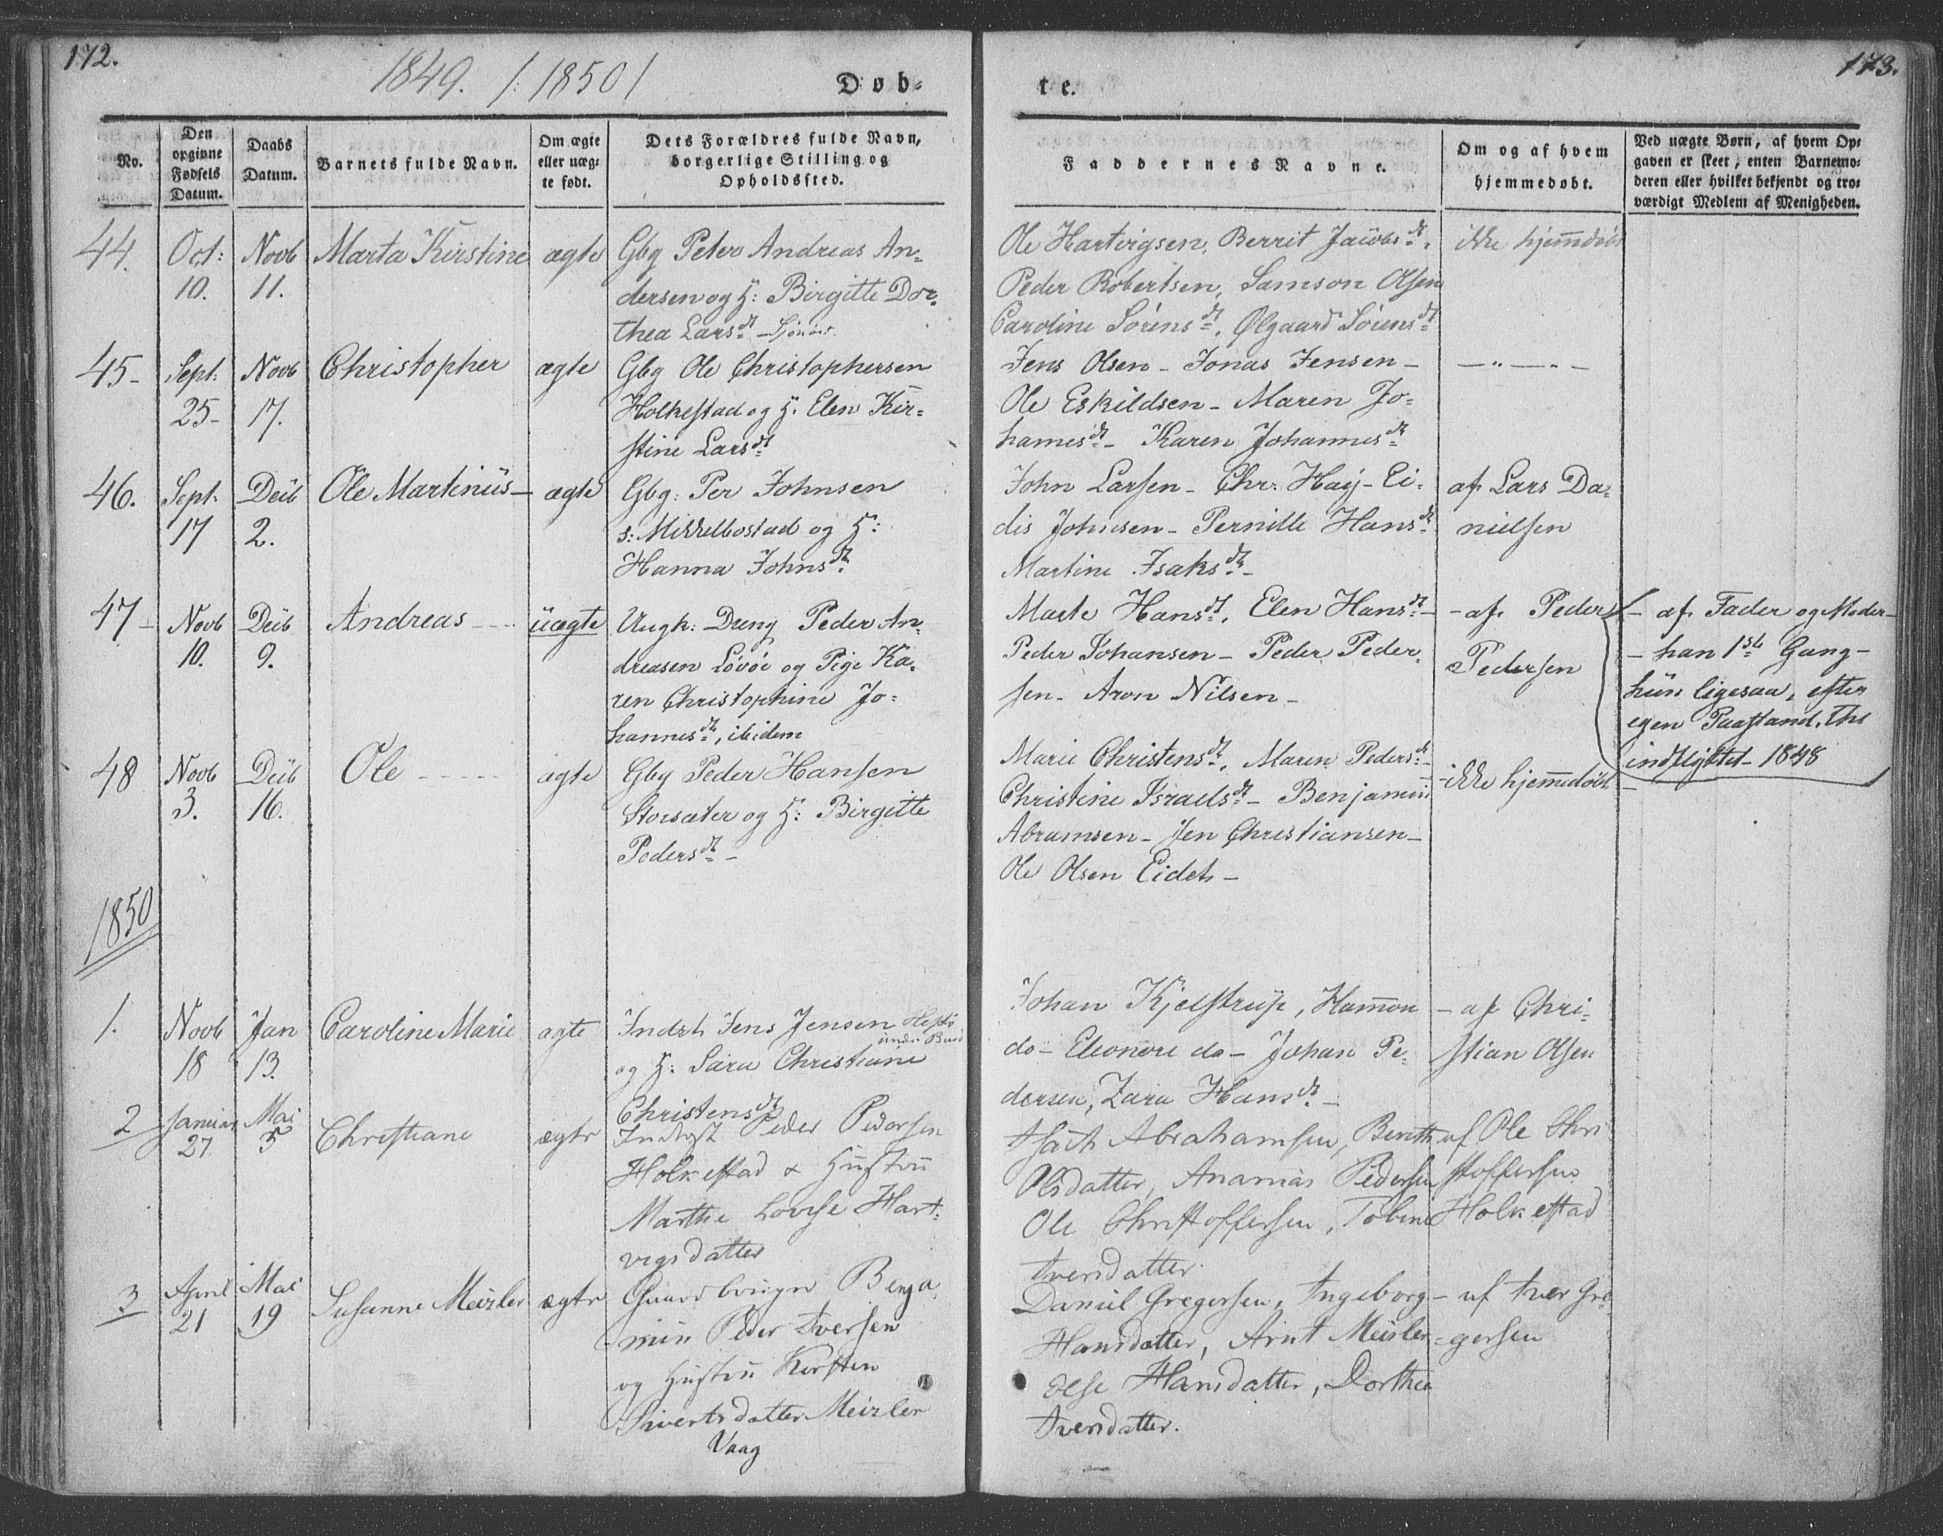 172.
1849. /: 1850/
Døb-
te.
173.
No.
Den opgivne Fødsels Datum.
Daabs Datum.
Barnets fulde Navn.
Om ægte eller uæg-
te født.
Dets Forældres fulde Navn,
borgerlige Stilling og
Opholdssted.
Faddernes Navne.
Om og af hvem
hjemmedøbt.
Ved uægte Børn, af hvem Op-
gaven er skeet, enten Barnemo-
deren eller hvilket bekjendt og tro-
værdigt Medlem af Menigheden.
44.
Oct:
10.
Novb
11.
Marta Kirstine
ægte
Gbg Peter Andreas An-
dersen og H: Birgitte Dor-
thea Larsdt
Ole Hartvigsen, Berrit Jacobsdt,
Peder Robertsen, Samson Olsen
Caroline Sørensdt, Ølgaard Sørensdt
ikke hjemdøbt
45-
Sept:
25-
Novb
17.
Christopher
ægte
Gbg Ole Christophersen
Holkestad og H. Elen Kir-
stine Larsdt
Jens Olsen - Jonas Jensen -
Ole Eskildsen - Maren Jo-
hannesdt - Karen Johannesdt
— „ — „ —
46.
Sept:
17
Decb
2.
Ole Martinus -
ægte
Gbg: Per Johnsen
s: Mikkelbostad og H:
Hanna Johnsdt
John Larsen - Chr. Høy - Ei-
dis Johnsen - Pernille Hansdt
Martine Isaksdt -
af Lars Da-
nielsen
47-
Novb
10.
Decb
9.
Andreas
uægte
Ungk: Dreng Peder An-
dreasen Løvøe og Pige Ka-
ren Christophine Jo-
hannesdt, ibidem
Marte Hansdt, Elen Hansdt -
Peder Johansen - Peder Peder-
sen - Aron Nilsen -
- af Peder
Pedersen
- af Fader og Moder -
- han 1ste Gang -
hun ligesaa, efter
egen Paastand, Ths
indflyttet - 1848
48
Novb
3.
Decb
16.
Ole
ægte
Gbg Peder Hansen
Storsæter og H: Birgitte
Pedersdt -
Marie Christensdt, Maren Pedersdt -
Christine Israelsdt - Benjamin
Abramsen - Jen Christiansen -
Ole Olsen Eidet -
ikke hjemmedøbt -
1850
1.
Novb
18
Jan
13.
Caroline Marie
ægte
Indst Jens Jensen
og H: Sara Christiane
Christensdt
Johan Kjelstrup, Hammon
do - Eleonore do - Johan Pe-
dersen, Zara Hansdt -
- af Chri-
stian Olsen
2
Januar
27
Mai
5
Christiane
ægte
Indsst Peder Pedersen
Holkestad & Hustru
Marthe Lovise Hart-
vigsdatter
Isach Abrahamsen, Berith
Olsdatter, Ananias Pedersen
Ole Christoffersen, Tobine
Iversdatter.
af Ole Chri
stoffersen
Holkestad
3
April
21
Mai
19
Susanne Meisler
ægte
Gaardbruger Benja
min Peder Iversen
og Hustru Kirsten
Sivertsdatter Meisler
Vaag
Daniel Gregersen, Ingeborg
Hansdatter, Arnt Meisler
Else Hansdatter, Dorthea
Iversdatter.
- af Iver Gre-
gersen